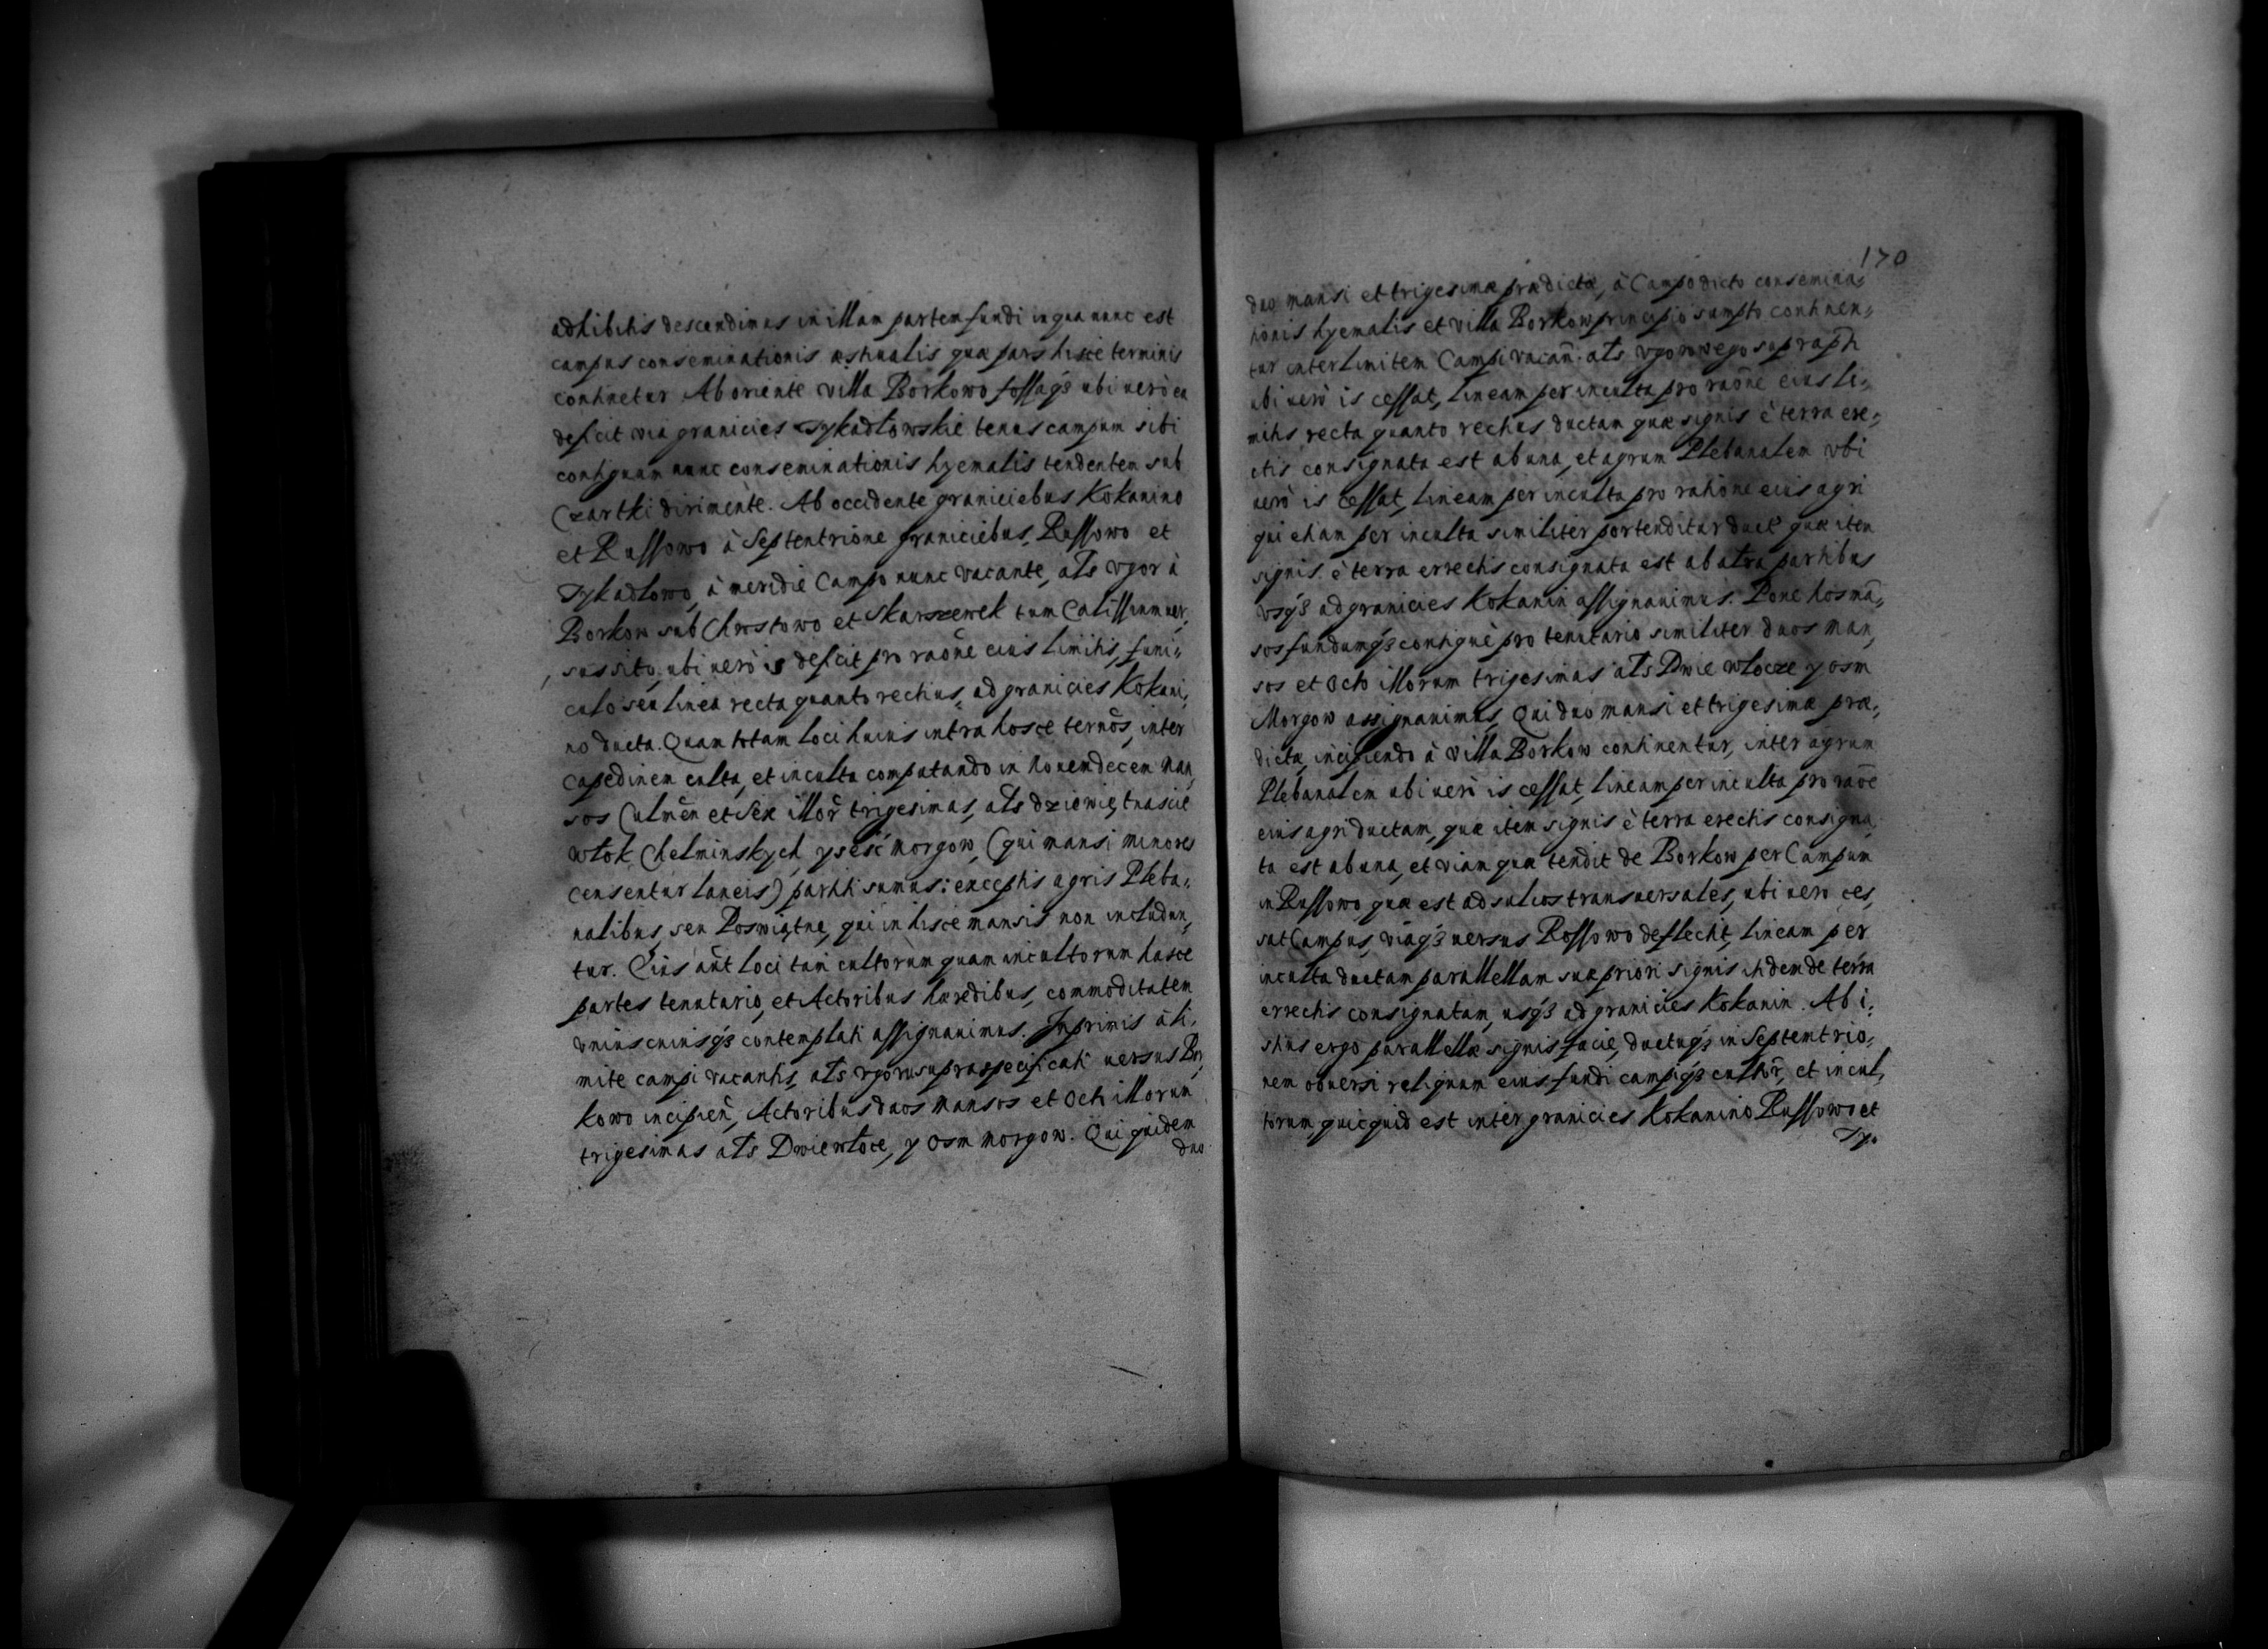 adhibitis descendimus in illam partem fundi in qua nunc est
campus conseminationis æstiualis quæ pars hisce terminis
continetur Ab oriente villa Borkowo fossaq́ʒ ubi uerò ea
deficit via granicies Tykadłowskie tenus campum sibi
contiguum nunc conseminationis hyemalis tendentem sub
Czartki dirimente. Ab occidente graniciebus Kokanino
et Russowo à Septentrione graniciebus, Russowo et
Tykadłowo, à meridie Campo nunc vacante, atʼs vgor à
Borkow sub Chrostowo et Skarszewek tum Calissium uer,
sus sito, ubi uerò is deficit pro raõne eius limitis, funi,,
culo seu linea recta quanto rectius, ad granicies Kokani,
no ducta. Quam totam loci huius intra hosce termõs, inter
capedinem culta, et inculta computando in nouendecem man,
sos Culmẽn et Sex illor̃ trigesimas, atʼs dziewiętnascie
włok Chelminskych y seść morgow, (qui mansi minores
censentur laneis) partiti sumus: exceptis agris Pleba,,
nalibus, seu Poswiątne, qui in hisce mansis non includun,
tur. Eius aũt loci tam cultorum quam incultorum hasce
partes tenutario, et Actoribus hæredibus, commoditatem
vniuscuiusq́ʒ contemplati assignauimus. Inprimis à li,
mite campi vacantis, atʼs vgoru supraspecificati uersus Bor,
kowo incipieñ, Actoribus duos mansos et octo illorum
trigesimas atʼs Dwie włoce, y osm morgow. Qui quidem
duo
170
duo mansi et trigesimæ prædictæ, à Campo dicto consemina,,
tionis hyemalis et villa Borkow principio sumpto continen,,
tur inter limitem Campi vacañ. atʼs vgorowego suprapñ
ubi uerò is cessat, lineam per inculta pro raõne eius li,,
mitis recta quanto rectius ductam quæ signis è terra ere,,
ctis consignata est ab una, et agrum Plebanalem vbi
uerò is cessat, lineam per inculta pro ratione eius agri
qui etiam per inculta similiter portenditur duct̃ quæ item
signis è terra errectis consignata est ab altra partibus
vsq́ʒ ad granicies Kokanin assignauimus. Pone hos mã,,
sos fundumq́ʒ contiguè pro tenutario similiter duos man,
sos et octo illorum trigesimas atʼs Dwie włocze y osm
Morgow assignauimus, Qui duo mansi et trigesimæ præ,,
dictæ, incipiendo à villa Borkow continentur, inter agrum
Plebanalem ubi uerò is cessat, lineam per inculta pro raõe
eius agri ductam, quæ item signis è terra erectis consigna,
ta est ab una, et viam quæ tendit de Borkow per Campum
in Russowo quæ est ad sulcos transuersales, ubi uero ces,
sat Campus, viaq́ʒ uersus Rossowo deflectit, lineam per
inculta ductam parallellam suæ priori signis itidem de terra
errectis consignatam, usq́ʒ ad granicies Kokanin. Ab i,,
stius ergo parallellæ signis facie, ductuq́ʒ in Septemtrio,,
nem obuersi reliquum eius fundi campiq́ʒ cultor̃, et incul,
torum quicquid est inter granicies Kokanino Russowo et
Ty,,